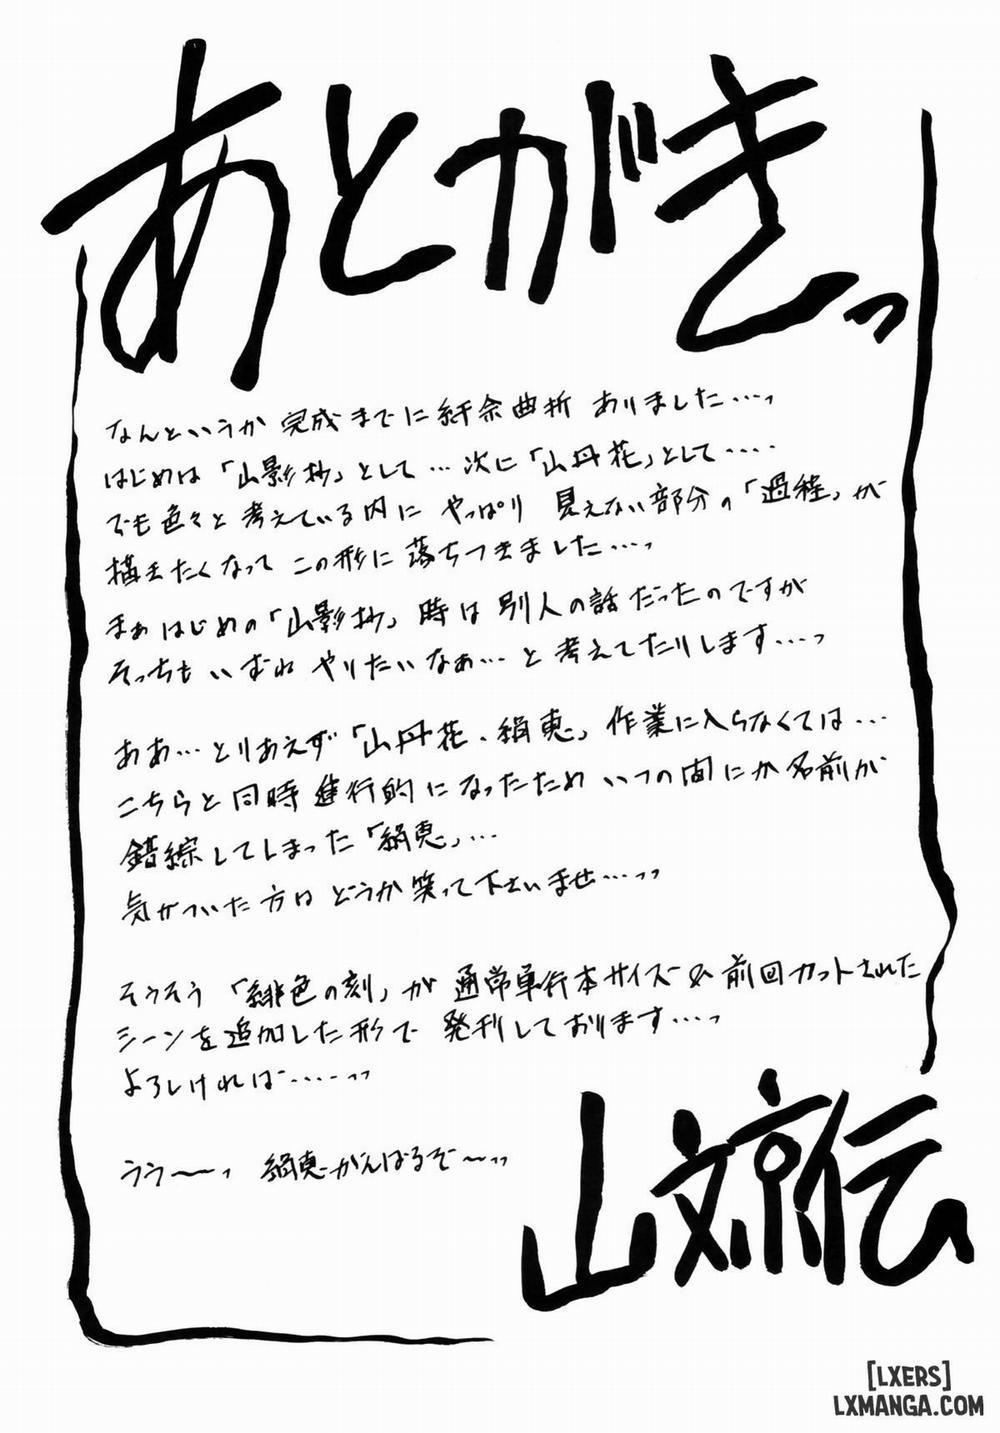 あとがきっ
なんというか 完成までに紆余曲折 ありました…っ
はじめは「山影抄」として…次に「山丹花」として‥‥
でも色々と 考えている内に やっぱり 見えない部分の「過程」が
描きたくなって この形に 落ちつきました…っ
まぁはじめの「山影抄」時は 別人の話だったのですが
そっちも いずれ やりたいなぁ…と 考えてたりします…っ
ああ…とりあえず「山丹花・絹恵」作業に入らなくては…
こちらと同時進行的になったため いつの間にか名前が
錯綜してしまった「絹恵」…
気がついた方は どうか笑って下さいませ…っっ
そうそう「緋色の刻」が 通常単行本サイズ& 前回カットされた
シーンを追加した形で 発刊しております…っ
よろしければ……っっ
うう〜っ 絹恵がんばるぞ〜っっ
山文京伝
[LXERS]
LXMANGA.COM